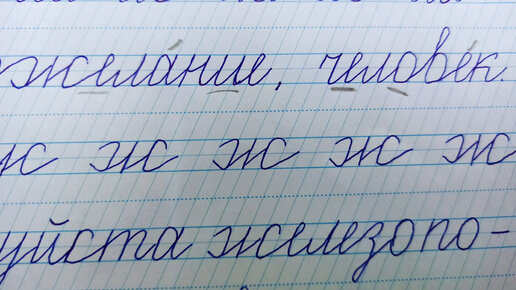 желание, человек.
ж ж ж ж ж
уйста железопо-